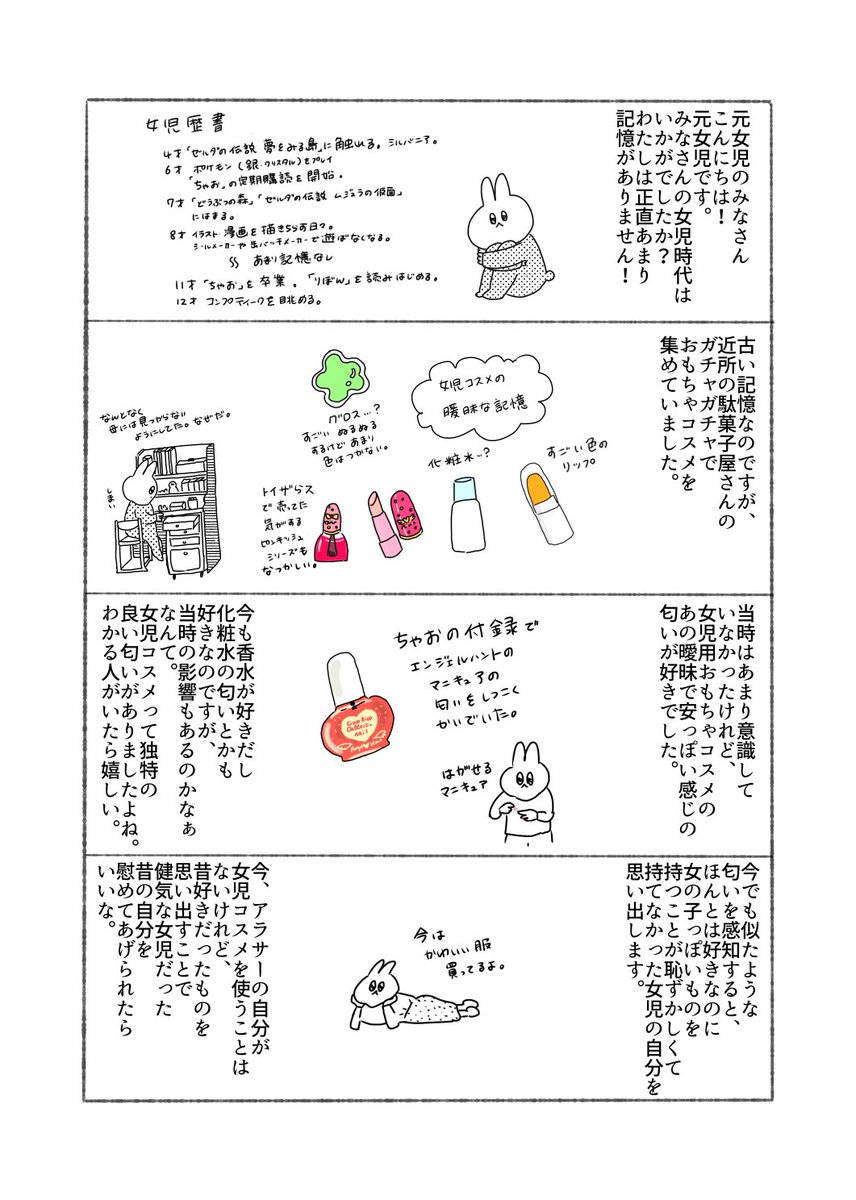 元女児のみなさん
こんにちは！
元女児です。
みなさんの女児時代は
いかがでしたか？
わたしは正直あまり
記憶がありません！
女児歴書
4才「ゼルダの伝説 夢をみる島」に触れる。シルバニア。
6才 ポケモン(銀・クリスタル)をプレイ
「ちゃお」の定期購読を開始。
7才「どうぶつの森」「ゼルダの伝説 ムジュラの仮面」
にはまる。
8才 イラスト・漫画を描きちらす日々。
シールメーカーや缶バッチメーカーで遊ばなくなる。
あまり記憶なし
11才「ちゃお」を卒業。「りぼん」を読みはじめる。
12才 コンプティークを眺める。
古い記憶なのですが、
近所の駄菓子屋さんの
ガチャガチャで
おもちゃコスメを
集めていました。
女児コスメの
曖昧な記憶
すごい色の
リップ
化粧水…？
グロス…？
すごい ぬるぬる
するけど あまり
色はつかない。
トイザらス
で売ってた
気がする
ピンキッシュ
シリーズも
なつかしい。
なんとなく
母には見つからない
ようにしてた。なぜだ。
しまい
当時はあまり意識して
いなかったけれど、
女児用おもちゃコスメの
あの曖昧で安っぽい感じの
匂いが好きでした。
ちゃおの付録で
エンジェルハントの
マニキュアの
匂いをしつこく
かいでいた。
はがせる
マニキュア
今も香水が好きだし
化粧水の匂いとかも
好きなのですが、
当時の影響もあるのかなぁ
なんて。
女児コスメって独特の
良い匂いがありましたよね。
わかる人がいたら嬉しい。
今でも似たような
匂いを感知すると、
ほんとは好きなのに
女の子っぽいものを
持つことが恥ずかしくて
持てなかった女児の自分を
思い出します。
今は
かわいい服
買ってるよ。
今、アラサーの自分が
女児コスメを使うことは
ないけれど、
昔好きだったものを
思い出すことで
健気な女児だった
昔の自分を
慰めてあげられたら
いいな。